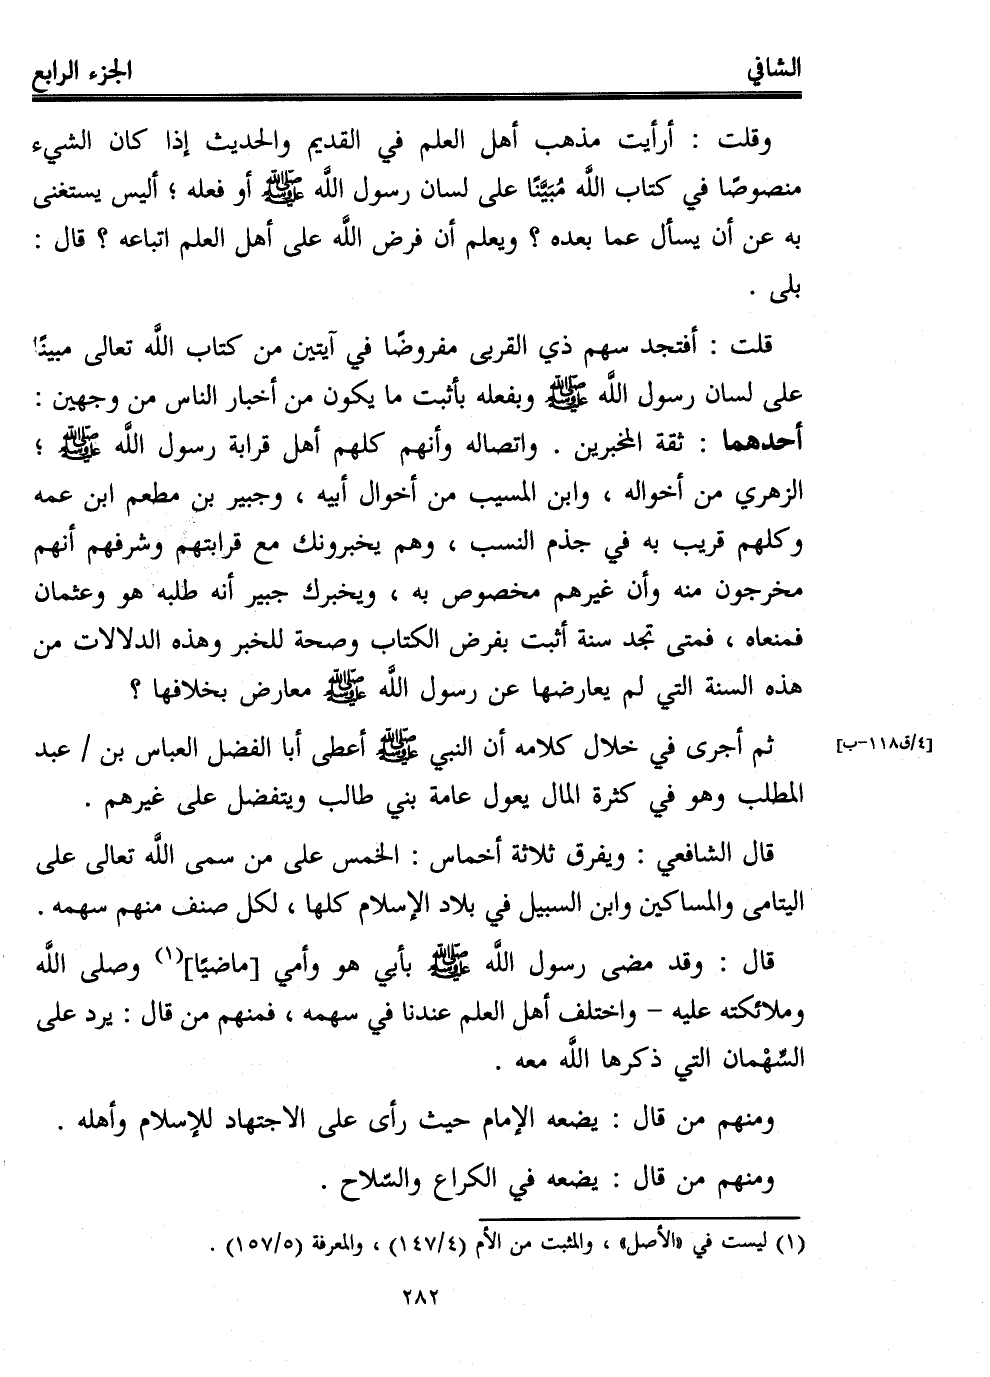 الشافي
الجزء الرابع
وقلت : أرأيت مذهب أهل العلم في القديم والحديث إذا كان الشيء
منصوصًا في كتاب اللَّه مُبَيَّنًا على لسان رسول اللَّه ﷺ أو فعله ؛ أليس يستغنى
به عن أن يسأل عما بعده ؟ ويعلم أن فرض اللَّه على أهل العلم اتباعه ؟ قال :
بلى .
قلت : أفتجد سهم ذي القربى مفروضًا في آيتين من كتاب اللَّه تعالى مبينًا
على لسان رسول اللَّه ﷺ وبفعله بأثبت ما يكون من أخبار الناس من وجهين :
أحدهما : ثقة المخبرين . واتصاله وأنهم كلهم أهل قرابة رسول اللَّه ﷺ ؛
الزهري من أخواله ، وابن المسيب من أخوال أبيه ، وجبير بن مطعم ابن عمه
وكلهم قريب به في جذم النسب ، وهم يخبرونك مع قرابتهم وشرفهم أنهم
مخرجون منه وأن غيرهم مخصوص به ، ويخبرك جبير أنه طلبه هو وعثمان
فمنعاه ، فمتى تجد سنة أثبت بفرض الكتاب وصحة للخبر وهذه الدلالات من
هذه السنة التي لم يعارضها عن رسول اللَّه ﷺ معارض بخلافها ؟
ثم أجرى في خلال كلامه أن النبي ﷺ أعطى أبا الفضل العباس بن / عبد
[٤/ق١١٨-ب]
المطلب وهو في كثرة المال يعول عامة بني طالب ويتفضل على غيرهم .
قال الشافعي : ويفرق ثلاثة أخماس : الخمس على من سمى اللَّه تعالى على
اليتامى والمساكين وابن السبيل في بلاد الإسلام كلها ، لكل صنف منهم سهمه .
قال : وقد مضى رسول اللَّه ﷺ بأبي هو وأمي [ماضيًا](١) وصلى اللَّه
وملائكته عليه – واختلف أهل العلم عندنا في سهمه ، فمنهم من قال : يرد على
السُّهْمان التي ذكرها اللَّه معه .
ومنهم من قال : يضعه الإمام حيث رأى على الاجتهاد للإسلام وأهله .
ومنهم من قال : يضعه في الكراع والسِّلاح .
(١) ليست في «الأصل» ، والمثبت من الأم (١٤٧/٤) ، والمعرفة (١٥٧/٥) .
٢٨٢